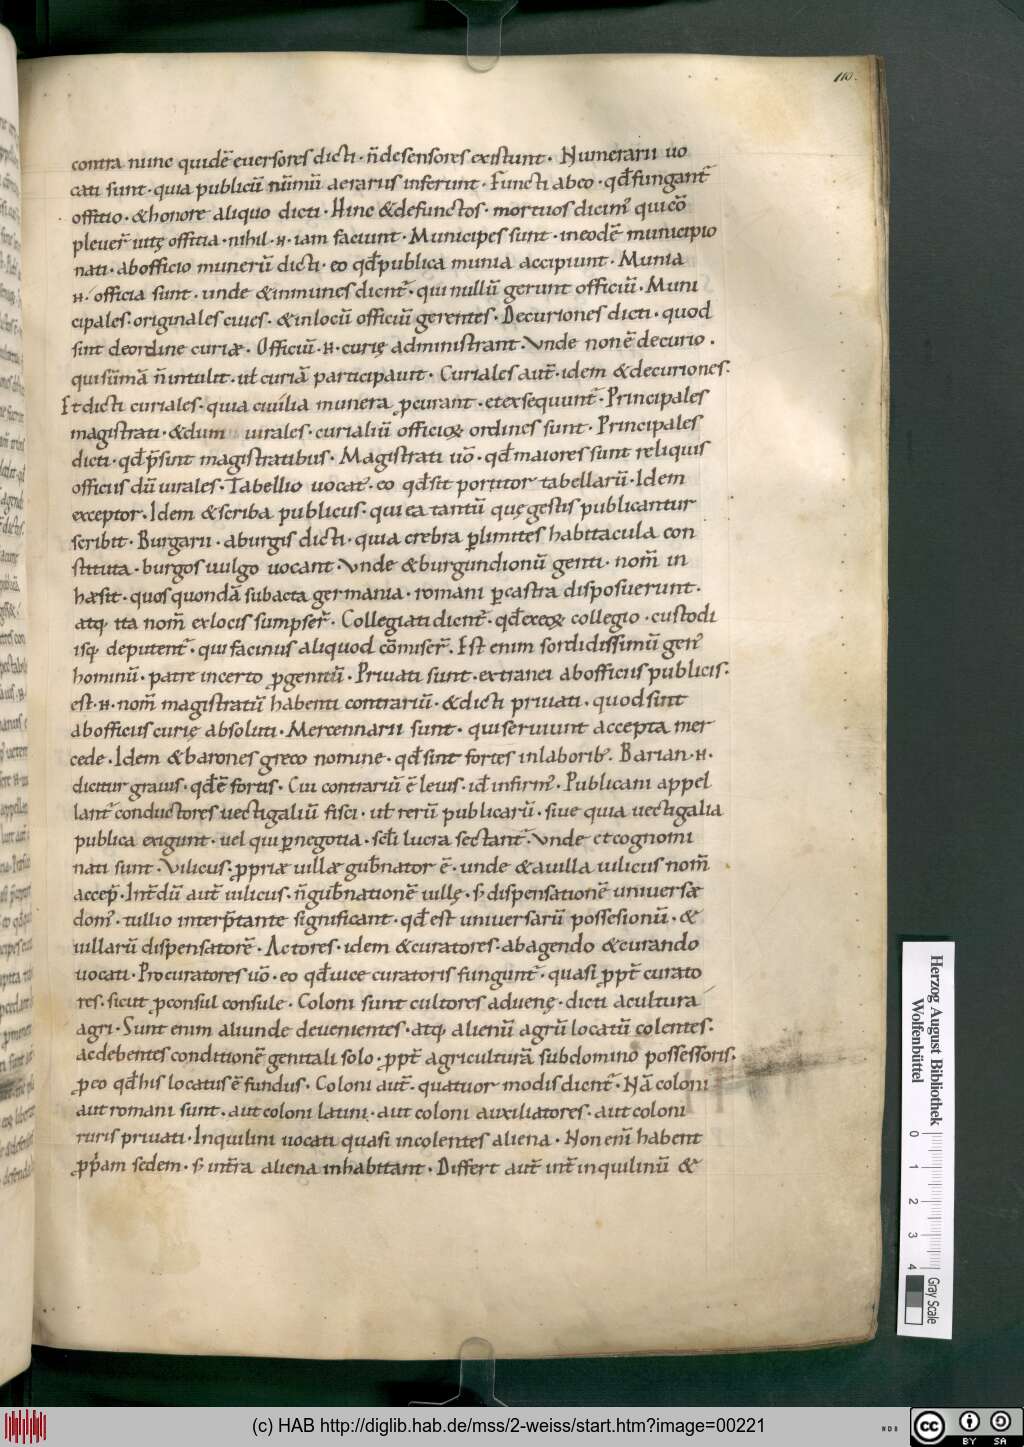 110.
contra nunc quidē euersores dicti · n̄ defensores existunt · Numerarii uo
cati sunt · quia publicū nūmū aerariis inferunt · Functi abeo · qđ fungant̃
offitio · & honore aliquo dicti · Hinc & defunctos · mortuos dicim᷒ qui cō
pleuer̄ uitę offitia · nihil · n · iam faciunt · Municipes sunt · in eodē municipio
nati · ab officio munerū dicti · eo qđ publica munia accipiunt · Munia
n · officia sunt · unde & inmunes dicent̃ · qui nullū gerunt officiū · Muni
cipales · originales ciues · & in locū officiū gerentes · Decuriones dicti · quod
sint de ordine curiæ · Officiū · n · curię administrant · Vnde non ē decurio ·
qui sūmā n̄ intulit · ul̄ curiā participauit · Curiales aut̄ · idem & decuriones ·
Et dicti curiales · quia ciuilia munera p̱curant · et exsequunt̃ · Principales
magistrati · & dum uirales · curialiū officioꝝ ordines sunt · Principales
dicti · qđ p̄sint magistratibus · Magistrati uō · qđ maiores sunt reliquis
officiis dū uirales · Tabellio uocat̃ · eo qđ sit portitor tabellarū · Idem
exceptor · Idem & scriba publicus · qui ea tantū quę gestis publicantur
scribit · Burgarii · a burgis dicti · quia crebra p̱ limites habitacula con
stituta · burgos uulgo uocant · Vnde & burgundionū genti · nom̄ in
hæsit · quos quondā subacta germania · romani p̱ castra disposuerunt ·
atq; ita nom̄ ex locis sumpser̄ · Collegiati dicent̃ · qđ ex eoꝝ collegio · custodi
isq; deputent̃ · qui facinus aliquod cōmiser̄ · Est enim sordidissimū gen᷒
hominū · patre incerto p̱genitū · Priuati sunt · extranei ab officiis publicis ·
est · n · nom̄ magistratū habenti contrariū · & dicti priuati · quod sint
ab officiis curię absoluti · Mercennarii sunt · qui seruiunt accepta mer
cede · Idem & barones greco nomine · qđ sint fortes in laborib᷒ · Barian · n ·
dicitur grauis · qđ ē fortis · Cui contrariū ē leuis · id̄ infirm᷒ · Publicani appel
lant̃ conductores uectigaliū fisci · ul̄ rerū publicarū · siue quia uectigalia
publica exigunt · uel qui p̱ negotia · scl̄i lucra sectant̃ · Vnde et cognomi
nati sunt · Vilicus · p̱priæ uillæ gub̄nator ē · unde & a uilla uilicus nom̄
accep̄ · Int̄dū aut̄ uilicus · n̄ gub̄nationē uillę · s; dispensationē uniuersæ
dom᷒ · tullio interp̄tante significant · qđ est uniuersarū possesionū · &
uillarū dispensatorē · Actores · idem & curatores · ab agendo & curando
uocati · Procuratores uō · eo qđ uice curatoris fungunt̃ · quasi p̱pt̄ curato
res · sicut p̱consul consule · Coloni sunt cultores aduenę · dicti a cultura
agri · Sunt enim aliunde deuenientes · atq; alienū agrū locatū colentes ·
ac debentes conditionē genitali solo · p̱pt̄ agriculturā sub domino possessoris ·
p̱ eo qđ his locatus ē fundus · Coloni aut̄ · quatuor modis dicent̃ · Nā coloni
aut romani sunt · aut coloni latini · aut coloni auxiliatores · aut coloni
ruris priuati · Inquilini uocati quasi incolentes aliena · Non eni habent
p̱p̄am sedem · s; int̄ra aliena inhabitant · Differt aut̄ int̄ inquilinū &
Herzog August Bibliothek
Wolfenbüttel
0 1 2 3 4
Gray Scale
(c) HAB http://diglib.hab.de/mss/2-weiss/start.htm?image=00221
WDB
cc BY SA